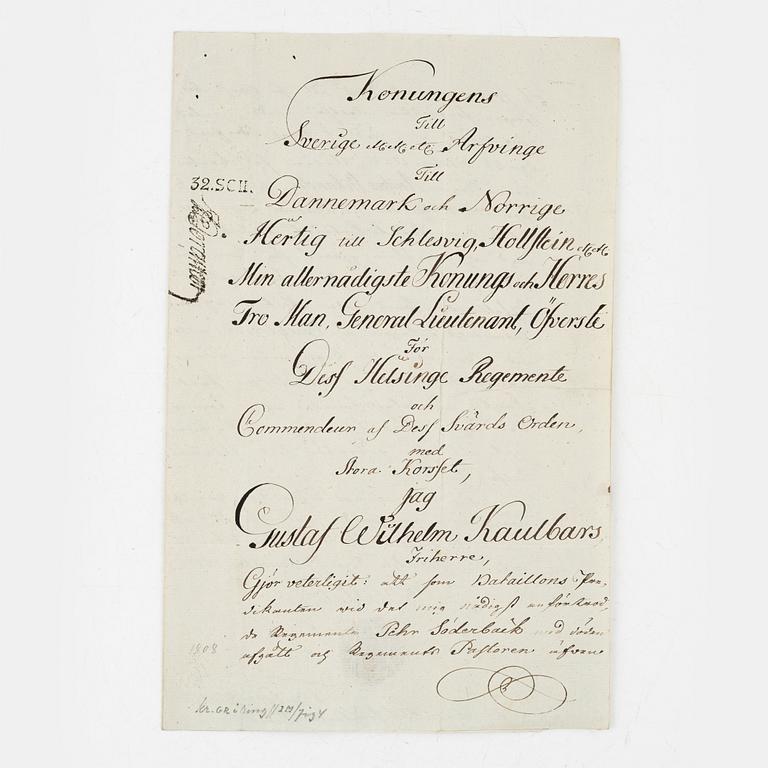 Konungens
Till
Sverige &c &c &c Arfvinge
Till
32.SCH.
Dannemark och Norrige
Hertig till Schlesvig, Hollstein &c &c
Min allernådigste Konungs och Herres
Tro Man, General Lieutenant, Öfverste
För
Dess Helsinge Regemente
och
Commendeur af Dess Svärds Orden,
med
Stora Korsset,
jag
Gustaf Wilhelm Kaulbars
Friherre,
Gjör veterligit: att som Bataillons Pre-
dikanten vid det mig nådigst anförtrod-
de Regemente Pehr Söderbaik med döden
afgått och Regements Pastoren äfven
1808